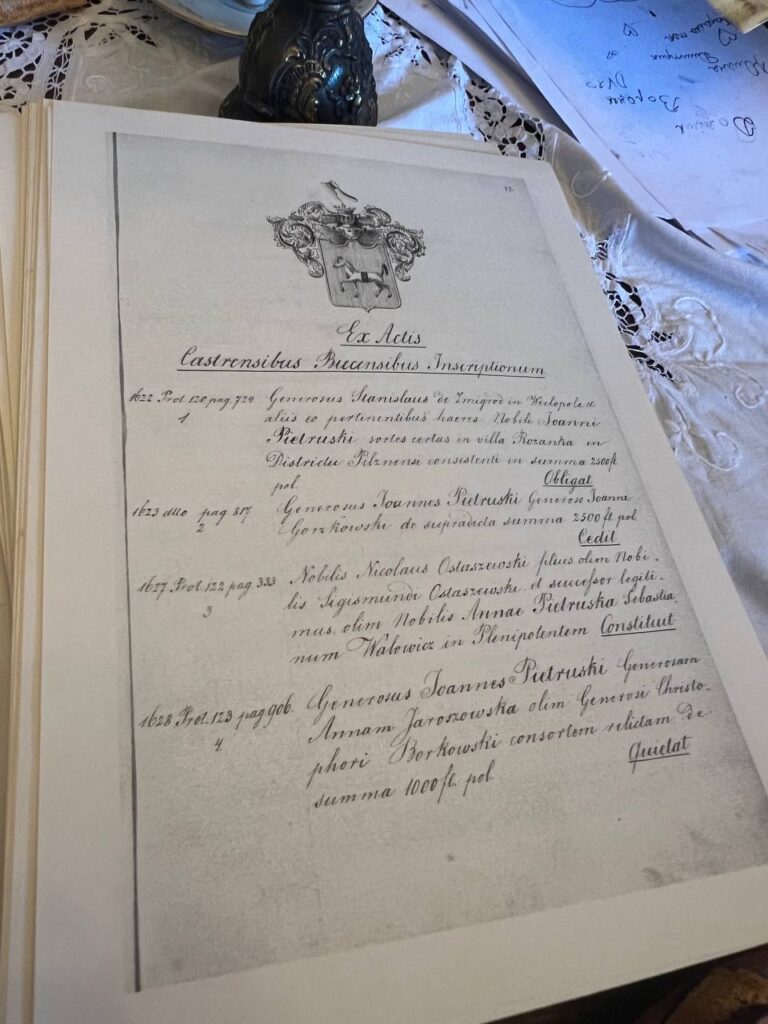 Ex Actis
Castrensibus Biecensibus Inscriptionum
1622 Prot. 120 pag. 724 Generosus Stanislaus de Zmigrod in Wielopole et
1 aliis eo pertinentibus haeres Nobili Joanni
Pietruski sortes certas in villa Rozanka in
Districtu Pilznensi consistenti in summa 2500 fl.
pol. Obligat
1623 dtto pag 817 Generosus Joannes Pietruski Generoso Joanni
2 Gorzkowski de supradicta summa 2500 fl. pol.
Cedit
1627 Prot. 122 pag 333 Nobilis Nicolaus Ostaszewski filius olim Nobi-
3 lis Sigismundi Ostaszewski et successor legiti-
mus olim Nobilis Annae Pietruska Sebastia-
num Walowicz in Plenipotentem Constituit
1628 Prot. 123 pag 906. Generosus Joannes Pietruski Generosam
4 Annam Jaroszowska olim Generosi Christo-
phori Borkowski consortem relictam de
summa 1000 fl. pol. Quietat